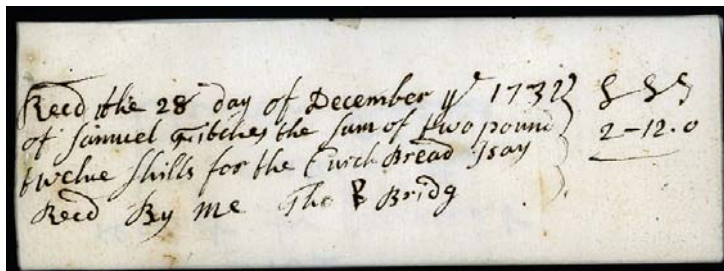 Recd the 28 day of December ye 1732 £ s s
of Samuel Fitches the sum of two pound 2-12.0
twelve shills for the Curch Bread I say
Recd By me Tho Bridg